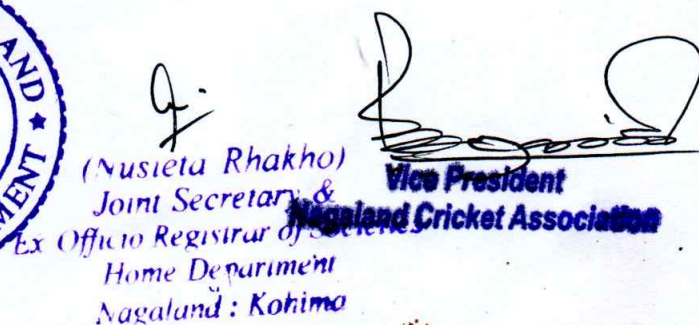 AND ★
MENT
(Nusieta Rhakho)
Joint Secretary &
Ex Officio Registrar of Societies
Home Department
Nagaland : Kohima
Vice President
Nagaland Cricket Association